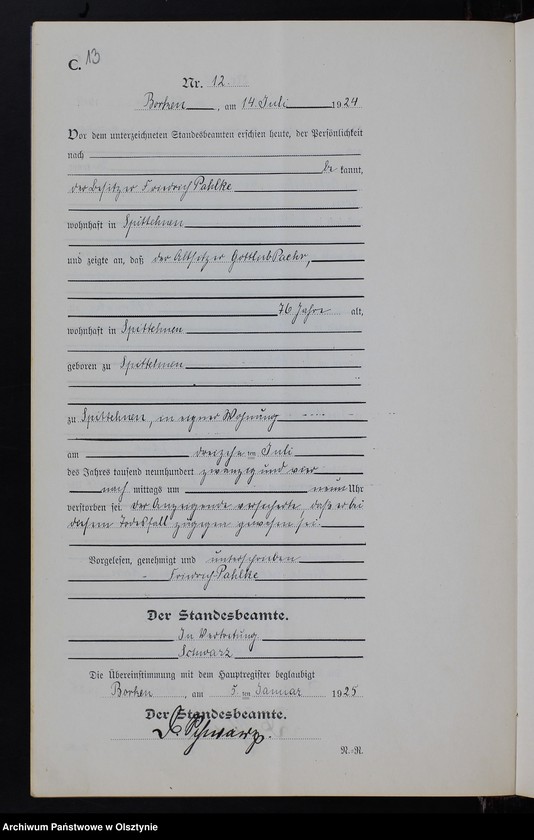 C. 13
Nr. 12.
Borken, am 14. Juli 1924
Vor dem unterzeichneten Standesbeamten erschien heute, der Persönlichkeit
nach
be kannt,
der Besitzer Friedrich Pahlke
wohnhaft in Spittehnen
und zeigte an, daß der Altsitzer Gottlieb Paehr,
76 Jahre alt,
wohnhaft in Spittehnen
geboren zu Spittehnen
zu Spittehnen, in eigner Wohnung
am dreizehn ten Juli
des Jahres tausend neunhundert zwanzig und vier
nach mittags um neun Uhr
verstorben sei. Der Anzeigende versicherte, daß er bei
diesem Todesfall zugegen gewesen sei.
Vorgelesen, genehmigt und unterschrieben
Friedrich Pahlke
Der Standesbeamte.
In Vertretung.
Schwarz
Die Übereinstimmung mit dem Hauptregister beglaubigt
Borken, am 5. ten Januar 1925
Der Standesbeamte.
Schwarz.
N.-R.
Archiwum Państwowe w Olsztynie